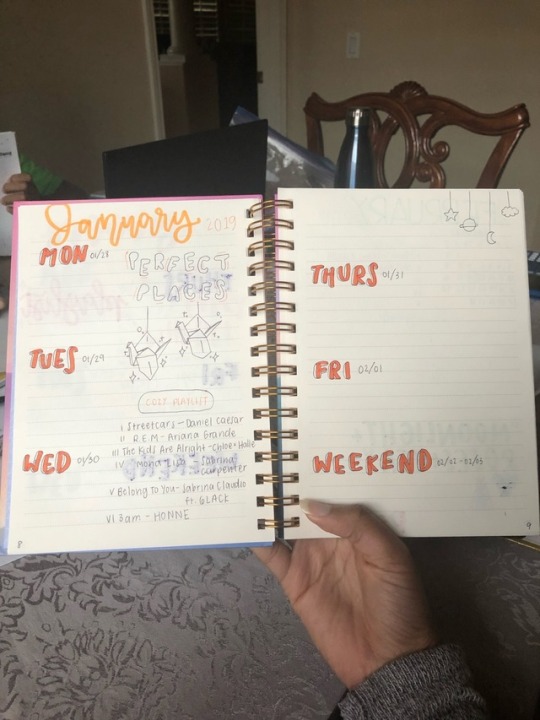 January 2019
MON 01/28
PERFECT
PLACES
TUES 01/29
COZY PLAYLIST
i Streetcars - Daniel Caesar
ii R.E.M - Ariana Grande
iii The Kids Are Alright - Chloe x Halle
WED 01/30
iv Mona Lisa - Sabrina
Carpenter
v Belong To You - Sabrina Claudio
ft. 6LACK
vi 3am - HONNE
8
THURS 01/31
FRI 02/01
WEEKEND 02/02 - 02/03
9